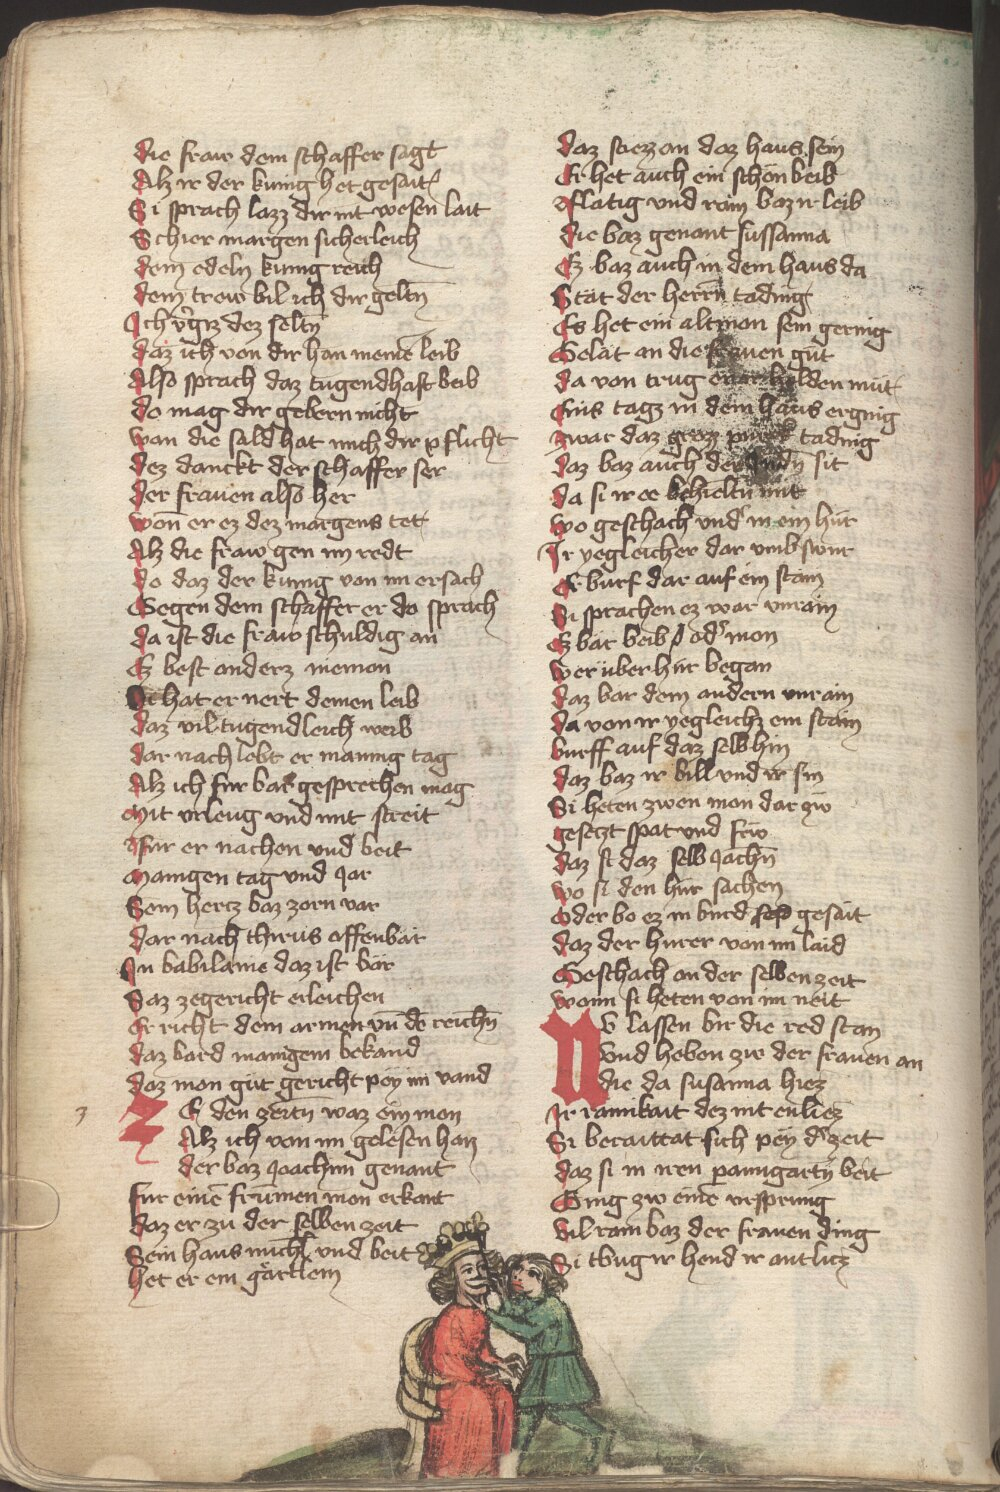 die fraw dem schaffer sagt
Alz ir der kunig het gesait
Si sprach lazz dir nit wesen lait
Schier margen sicherleich
dem edeln kunig reich
dem trew bil ich dir geltn
Ich dez seltn
daz ich von dir han meinē leib
Also sprach daz tugendhaft beib
do mag dir gebern nicht
wan die sald hat mich dir pflicht
dez danckt der schaffer ser
der frauen also her
won er ez dez margens tet
Alz die fraw gen im redt
do daz der kunig von im ersach
Gegen dem schaffer er do sprach
da ist die fraw schuldig an
Ez best anderz niemon
Si hat ernert deinen leib
daz vil tugendleich weib
dar nach lebt er manig tag
Alz ich fur bar gesprechen mag
Mit vrleug vnd mit streit
fur er nachen vnd beit
Manigen tag vnd jar
Sein hercz baz zorn var
dar nach thirus offenbar
In babilanie daz ist bar
Saz zegericht eileichen
Er richt dem armen vn̄ dē reichn̄
daz bard manigem bekand
daz mon gut gericht pey im vand
3
Ze den zeitn waz ein mon
Alz ich von im gelesen han
der baz Joachim genant
fur einē frumen mon erkant
daz er zu der selben zeit
Sein haus michl vnd beit
het er ein gärtlein
daz stiezz an daz haus sein
Er het auch ein schön beib
flatig vnd rain baz ir leib
die baz genant sussanna
Ez baz auch in dem haus da
Stät der herrn tading
Es het ein altmon sein gernig
Gelät an die frauen gut
da von trug er ir holden mut
Eins tagz in dem haus erging
zwar daz grozz tading
daz baz auch der Judn sit
da si ir ee behieltn mit
wo geschach vnd in ein hur
Ir yegleicher dar vmb swur
Er burf dar auf ein stain
Si sprachen ez war vnrain
Ez bar beib od mon
wer über hur began
daz bar dem andern vnrain
da von ir yegleichz ein stain
burff auf daz selb hin
daz baz ir bill vnd ir sin
Si heten zwen mon dar zw
geseczt spat vnd frw
daz si daz selb sachn
wo si den hur sachen
Oder bo ez in burd gesait
daz der hurer von im laid
Geschach an der selben zeit
wann si heten von im neit
Nv lassen bir die red stan
Vnd heben zw der frauen an
die da susanna hiez
Ir rainikait dez nit enliez
Si beraittat sich pey der zeit
daz si in iren paumgartn beit
Ging zw einē vrsprung
Vil rain baz der frauen ding
Si tbug ir hend ir antlicz